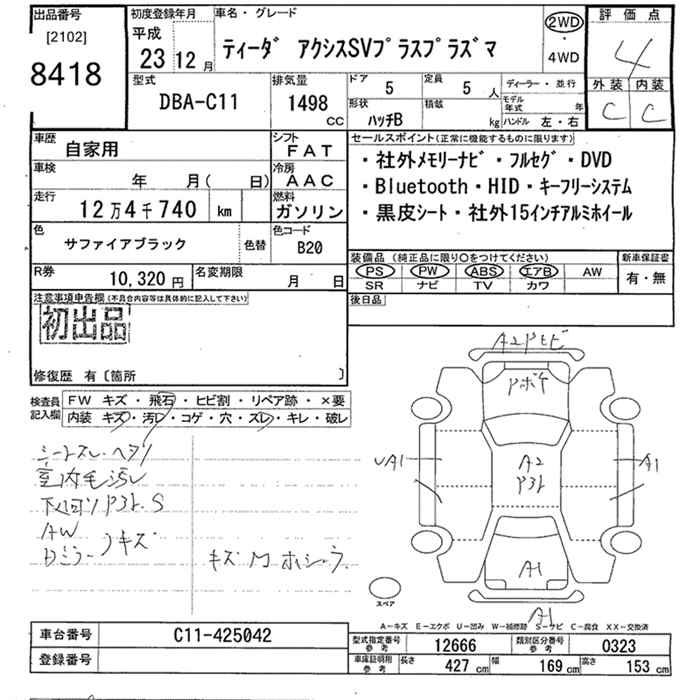 出品番号 初度登録年月 車名・グレード 評価点
[2102] 平成 2WD
8418 23年 12月 ティーダ アクシスSVプラスプラズマ ・ 4
4WD
型式 排気量 ドア 5 定員 5人 ディーラー・並行 外装 内装
DBA-C11 1498 CC 形状 ハッチB 積載 kg モデル年式 年 C C
ハンドル 左・右
車歴 自家用 シフト FAT セールスポイント(正常に機能するものに限ります)
車検 年 月( 日) 冷房 AAC ・社外メモリーナビ・フルセグ・DVD
走行 12万4千740 km 燃料 ガソリン ・Bluetooth・HID・キーフリーシステム
色 サファイアブラック 色替 色コード B20 ・黒皮シート・社外15インチアルミホイール
装備品(純正品に限り○をつけてください) 新車保証書
R券 10,320円 名変期限 月 日 PS PW ABS エアB AW 有・無
SR ナビ TV カワ
注意事項申告欄(不具合内容等は具体的に記入して下さい) 後日品
初出品
修復歴 有〔箇所 〕
検査員 FW キズ・飛石・ヒビ割・リペア跡・×要
記入欄 内装 キズ・汚レ・コゲ・穴・スレ・キレ・破レ
シートスレ・ヘタリ
室内毛汚レ
AW
キズ
A1
A2
A1
A1
A1
スペア
A-キズ E-エクボ U-凹み W-補修跡 S-サビ C-腐食 XX-交換済
車台番号 C11-425042 型式指定番号 参考 12666 類別区分番号 参考 0323
登録番号 車庫証明用 参考 長さ 427 cm 幅 169 cm 高さ 153 cm